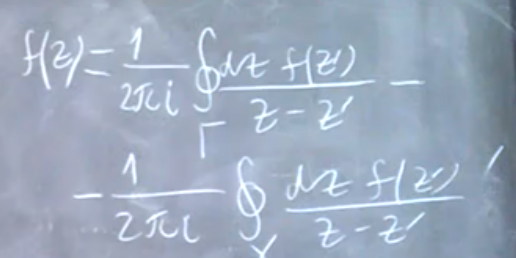 f(z)=\frac{1}{2\pi i}\oint_{\Gamma}\frac{dz f(z')}{z-z'}-
-\frac{1}{2\pi i}\oint_{\gamma}\frac{dz f(z')}{z-z'}'